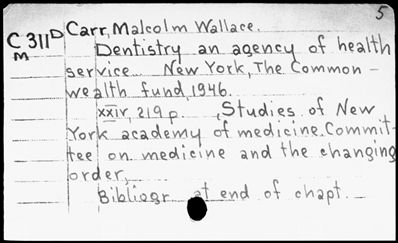 5
C 311 D Carr, Malcolm Wallace.
M Dentistry an agency of health
service. New York, The Common-
wealth fund, 1946.
xxiv, 219 p. , Studies of New
York academy of medicine. Commit-
tee on medicine and the changing
order.
Bibliogr. at end of chapt.